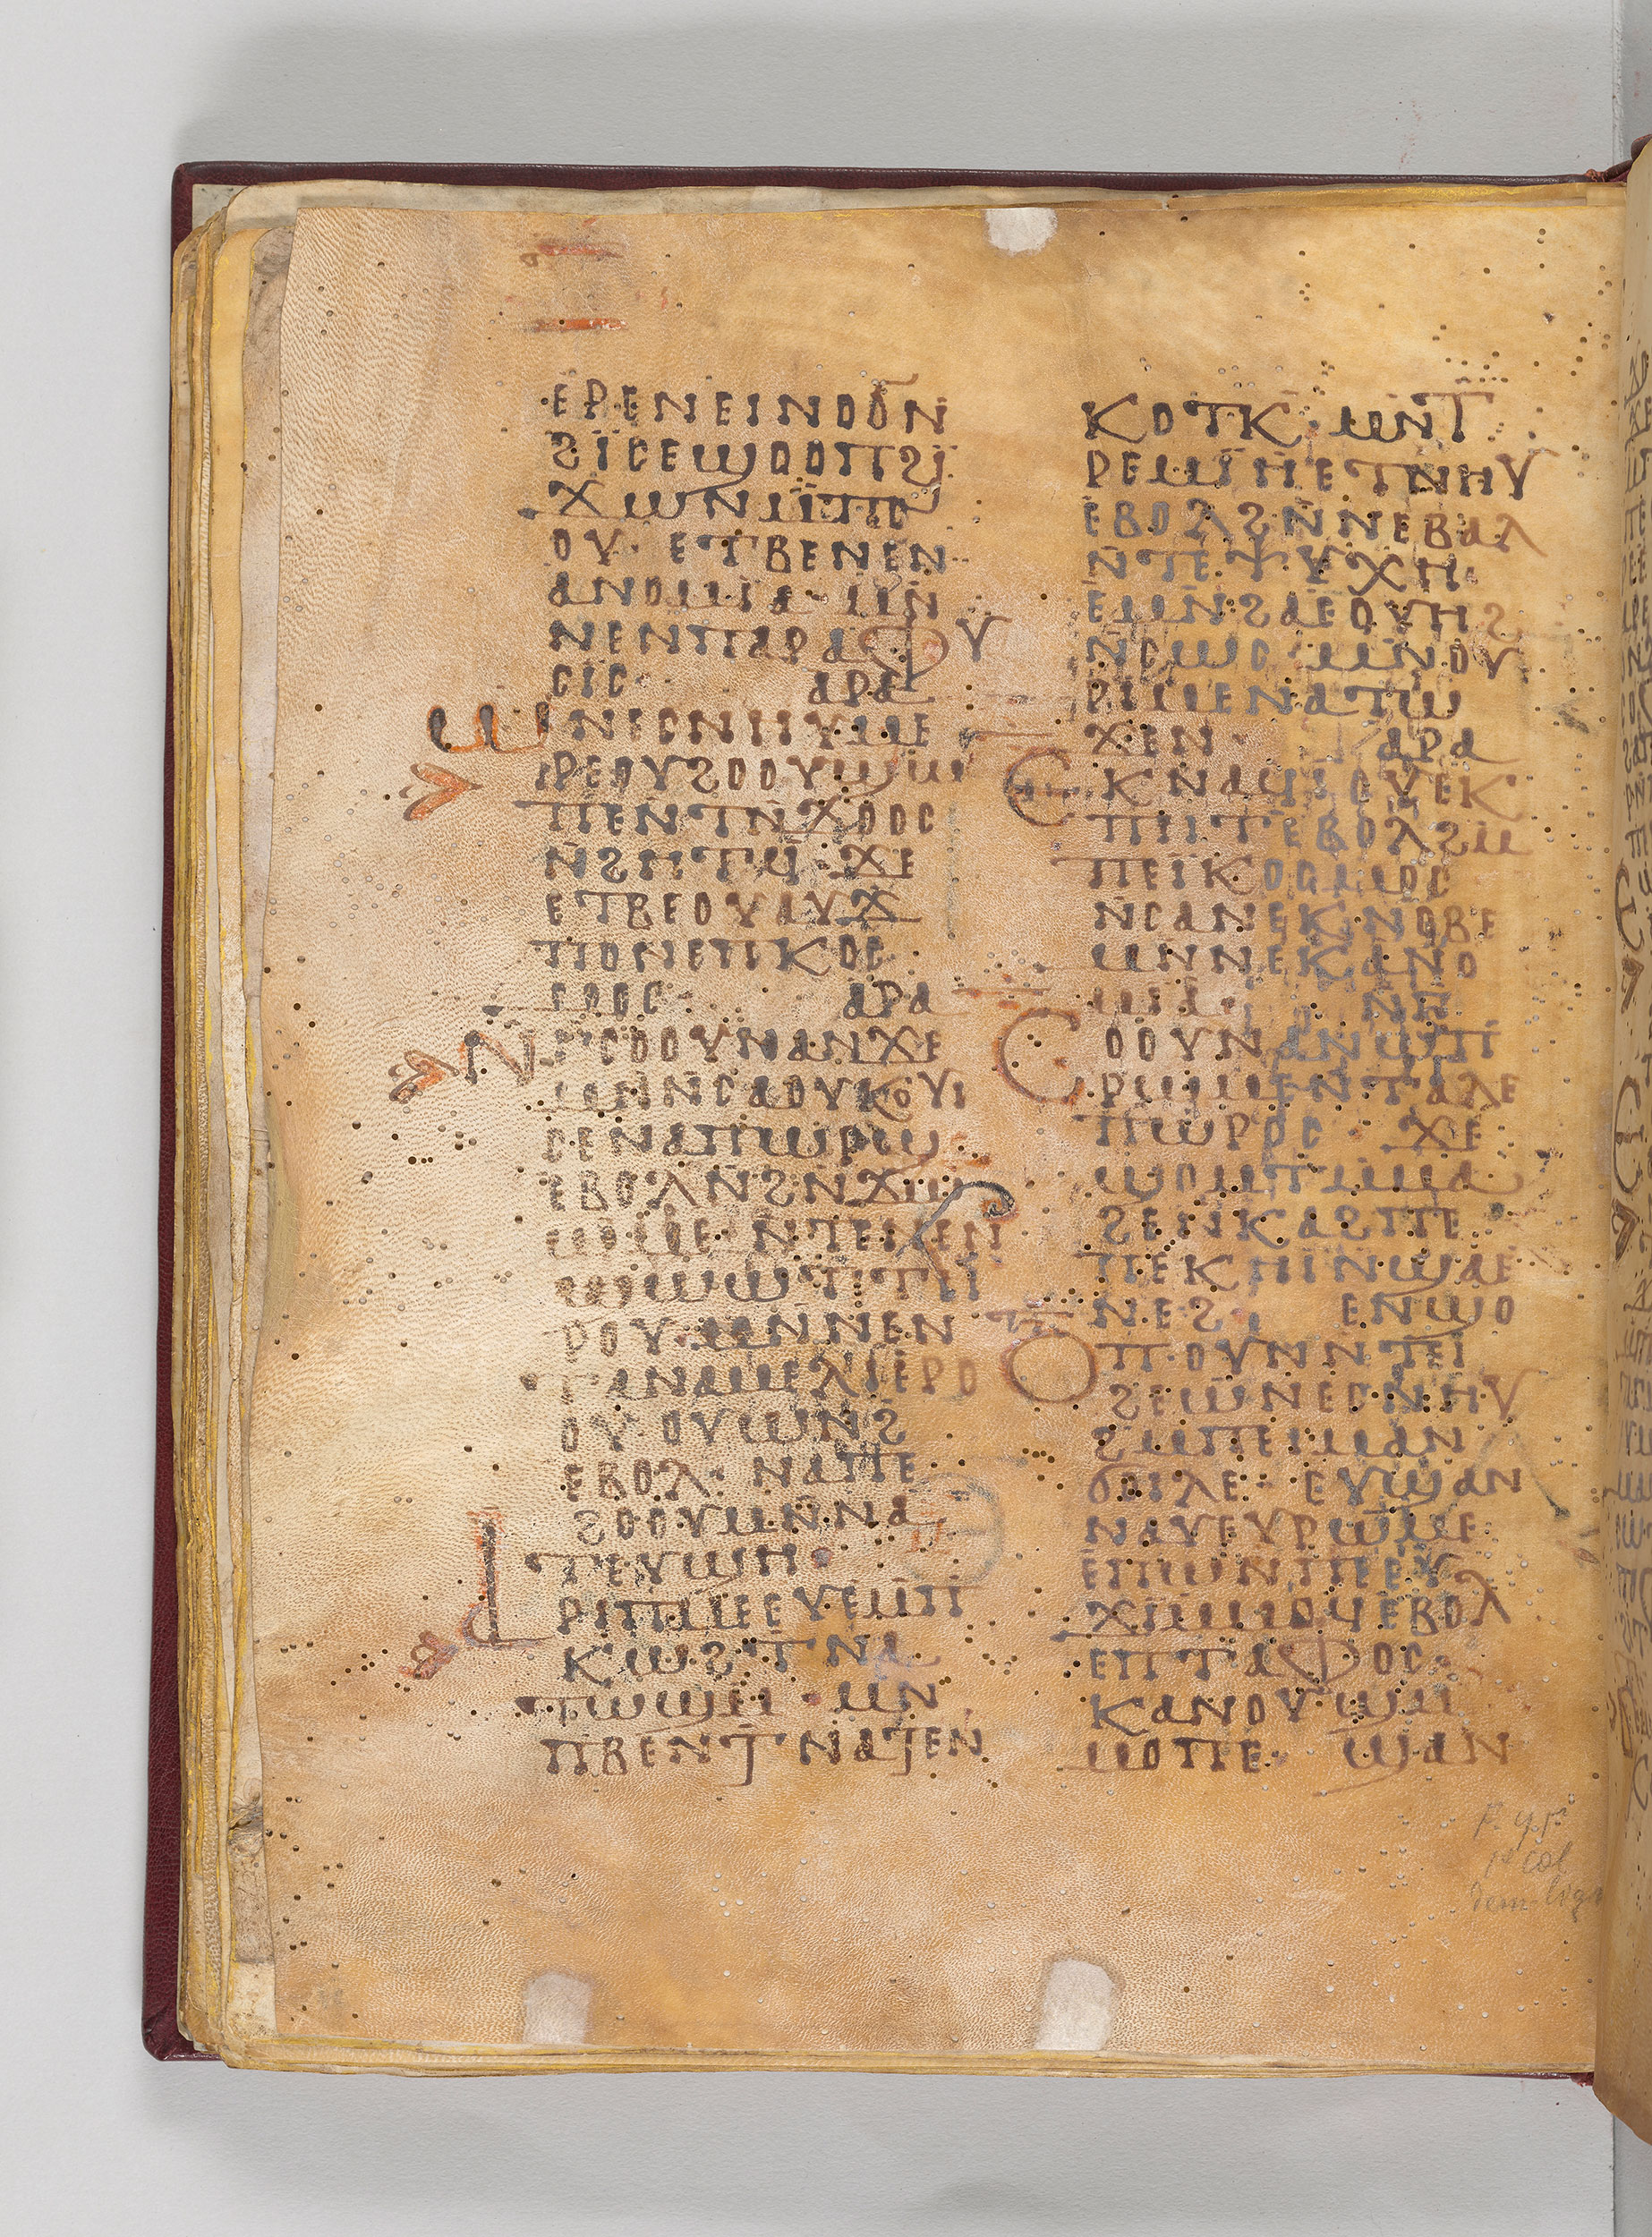 ⲉⲣⲉⲛⲉⲓⲛⲟϭⲛ̄
ϩⲓⲥⲉϣⲟⲟⲡϩⲓ
ϫⲱⲛ ⲙ̄ⲡⲟ
ⲟⲩ· ⲉⲧⲃⲉⲛⲉⲛ
ⲁⲛⲟⲙⲓⲁ· ⲙⲛ̄
ⲛⲉⲛⲡⲁⲣⲁⲫⲩ
ⲥⲓⲥ· ⲁⲣⲁ
ⲱⲛⲉⲥⲛⲏⲩⲙⲉ
ⲣⲉⲟⲩϩⲟⲟⲩϣⲱ
ⲡⲉⲛⲧⲛ̄ϫⲟⲟⲥ
ⲛ̄ϩⲏⲧϥ̄· ϫⲉ
ⲉⲧⲃⲉⲟⲩⲁⲩϫ
ⲡⲟⲛⲉⲡⲕⲟⲥ
ⲙⲟⲥ· ⲁⲣⲁ
ⲛ̄ⲧⲥⲟⲟⲩⲛⲁⲛϫⲉ
ⲙⲛ̄ⲛⲥⲁⲟⲩⲕⲟⲩⲓ
ⲥⲉⲛⲁⲡⲱⲣϣ̄
ⲉⲃⲟⲗⲛ̄ϩⲛ̄ϫⲱ
ⲱⲙⲉ· ⲛ̄ⲧⲉⲛⲉⲛ
ϣⲱⲱⲧ ⲧⲏ
ⲣⲟⲩ· ⲙⲛ̄ⲛⲉⲛ
ⲧⲁⲛⲁⲙⲉⲗⲓⲉⲣⲟ
ⲟⲩ· ⲟⲩⲱⲛϩ̄
ⲉⲃⲟⲗ· ⲛⲁⲡⲉ
ϩⲟⲟⲩⲙⲛ̄ⲛⲁ
ⲧⲉⲩϣⲏ·
ⲁⲣⲓⲡⲙⲉⲉⲩⲉⲙⲡ
ⲕⲱϩⲧ ⲛⲁ
ⲧⲱϣⲙ̄· ⲙⲛ̄
ⲡⲃⲉⲛϯ ⲛⲁϯⲉⲛ
ⲕⲟⲧⲕ· ⲙⲛ̄ⲧ
ⲣⲙ̄ⲉⲓⲏⲉⲧⲛⲏⲩ
ⲉⲃⲟⲗϩⲛ̄ⲛⲉⲃⲁⲗ
ⲛ̄ⲧⲉⲯⲩⲭⲏ·
ⲉⲙⲛ̄ϩⲁⲉⲟⲩⲏϩ
ⲛ̄ⲥⲱⲥ· ⲙⲛ̄ⲟⲩ
ⲣⲓⲙⲉⲛⲁⲧⲱ
ϫⲉⲛ· ⲁⲣⲁ
ⲉⲕⲛⲁϥⲓ ⲟⲩⲉⲕ
ⲡⲏⲧⲉⲃⲟⲗϩⲙ̄
ⲡⲉⲓⲕⲟⲥⲙⲟⲥ
ⲛ̄ⲥⲁⲛⲉⲕⲛⲟⲃⲉ
ⲙⲛ̄ⲛⲉⲕⲁⲛⲟ
ⲙⲓⲁ· ⲛⲅ̄
ⲥⲟⲟⲩⲛⲁⲛⲱⲡ
ⲣⲱⲙⲉⲛⲧⲁⲗⲉ
ⲡⲱⲣⲟⲥ ϫⲉ
ϣⲟⲙⲧ ⲙⲙⲁ
ϩⲉⲛⲕⲁϩⲡⲉ
ⲡⲉⲕⲏⲓ̈ⲛϣⲁⲉ
ⲛⲉϩ· ⲉⲛϣⲟ
ⲟⲡ·ⲟⲩⲛ ⲛ̄ⲧⲉⲓ
ϩⲉⲱⲛⲉⲥⲛⲏⲩ
ϩⲙ̄ⲡⲉⲓⲙⲁⲛ
ϭⲟⲓⲗⲉ· ⲉⲩϣⲁⲛ
ⲛⲁⲩⲉⲩⲣⲱⲙⲉ
ⲉⲡⲱⲛ ⲡⲉⲉⲩ
ϫⲓⲙⲙⲟϥⲉⲃⲟⲗ
ⲉⲡⲧⲁⲫⲟⲥ·
ⲕⲁⲛⲟⲩϣⲙ̄
ⲙⲟⲡⲉ· ϣⲁⲛ